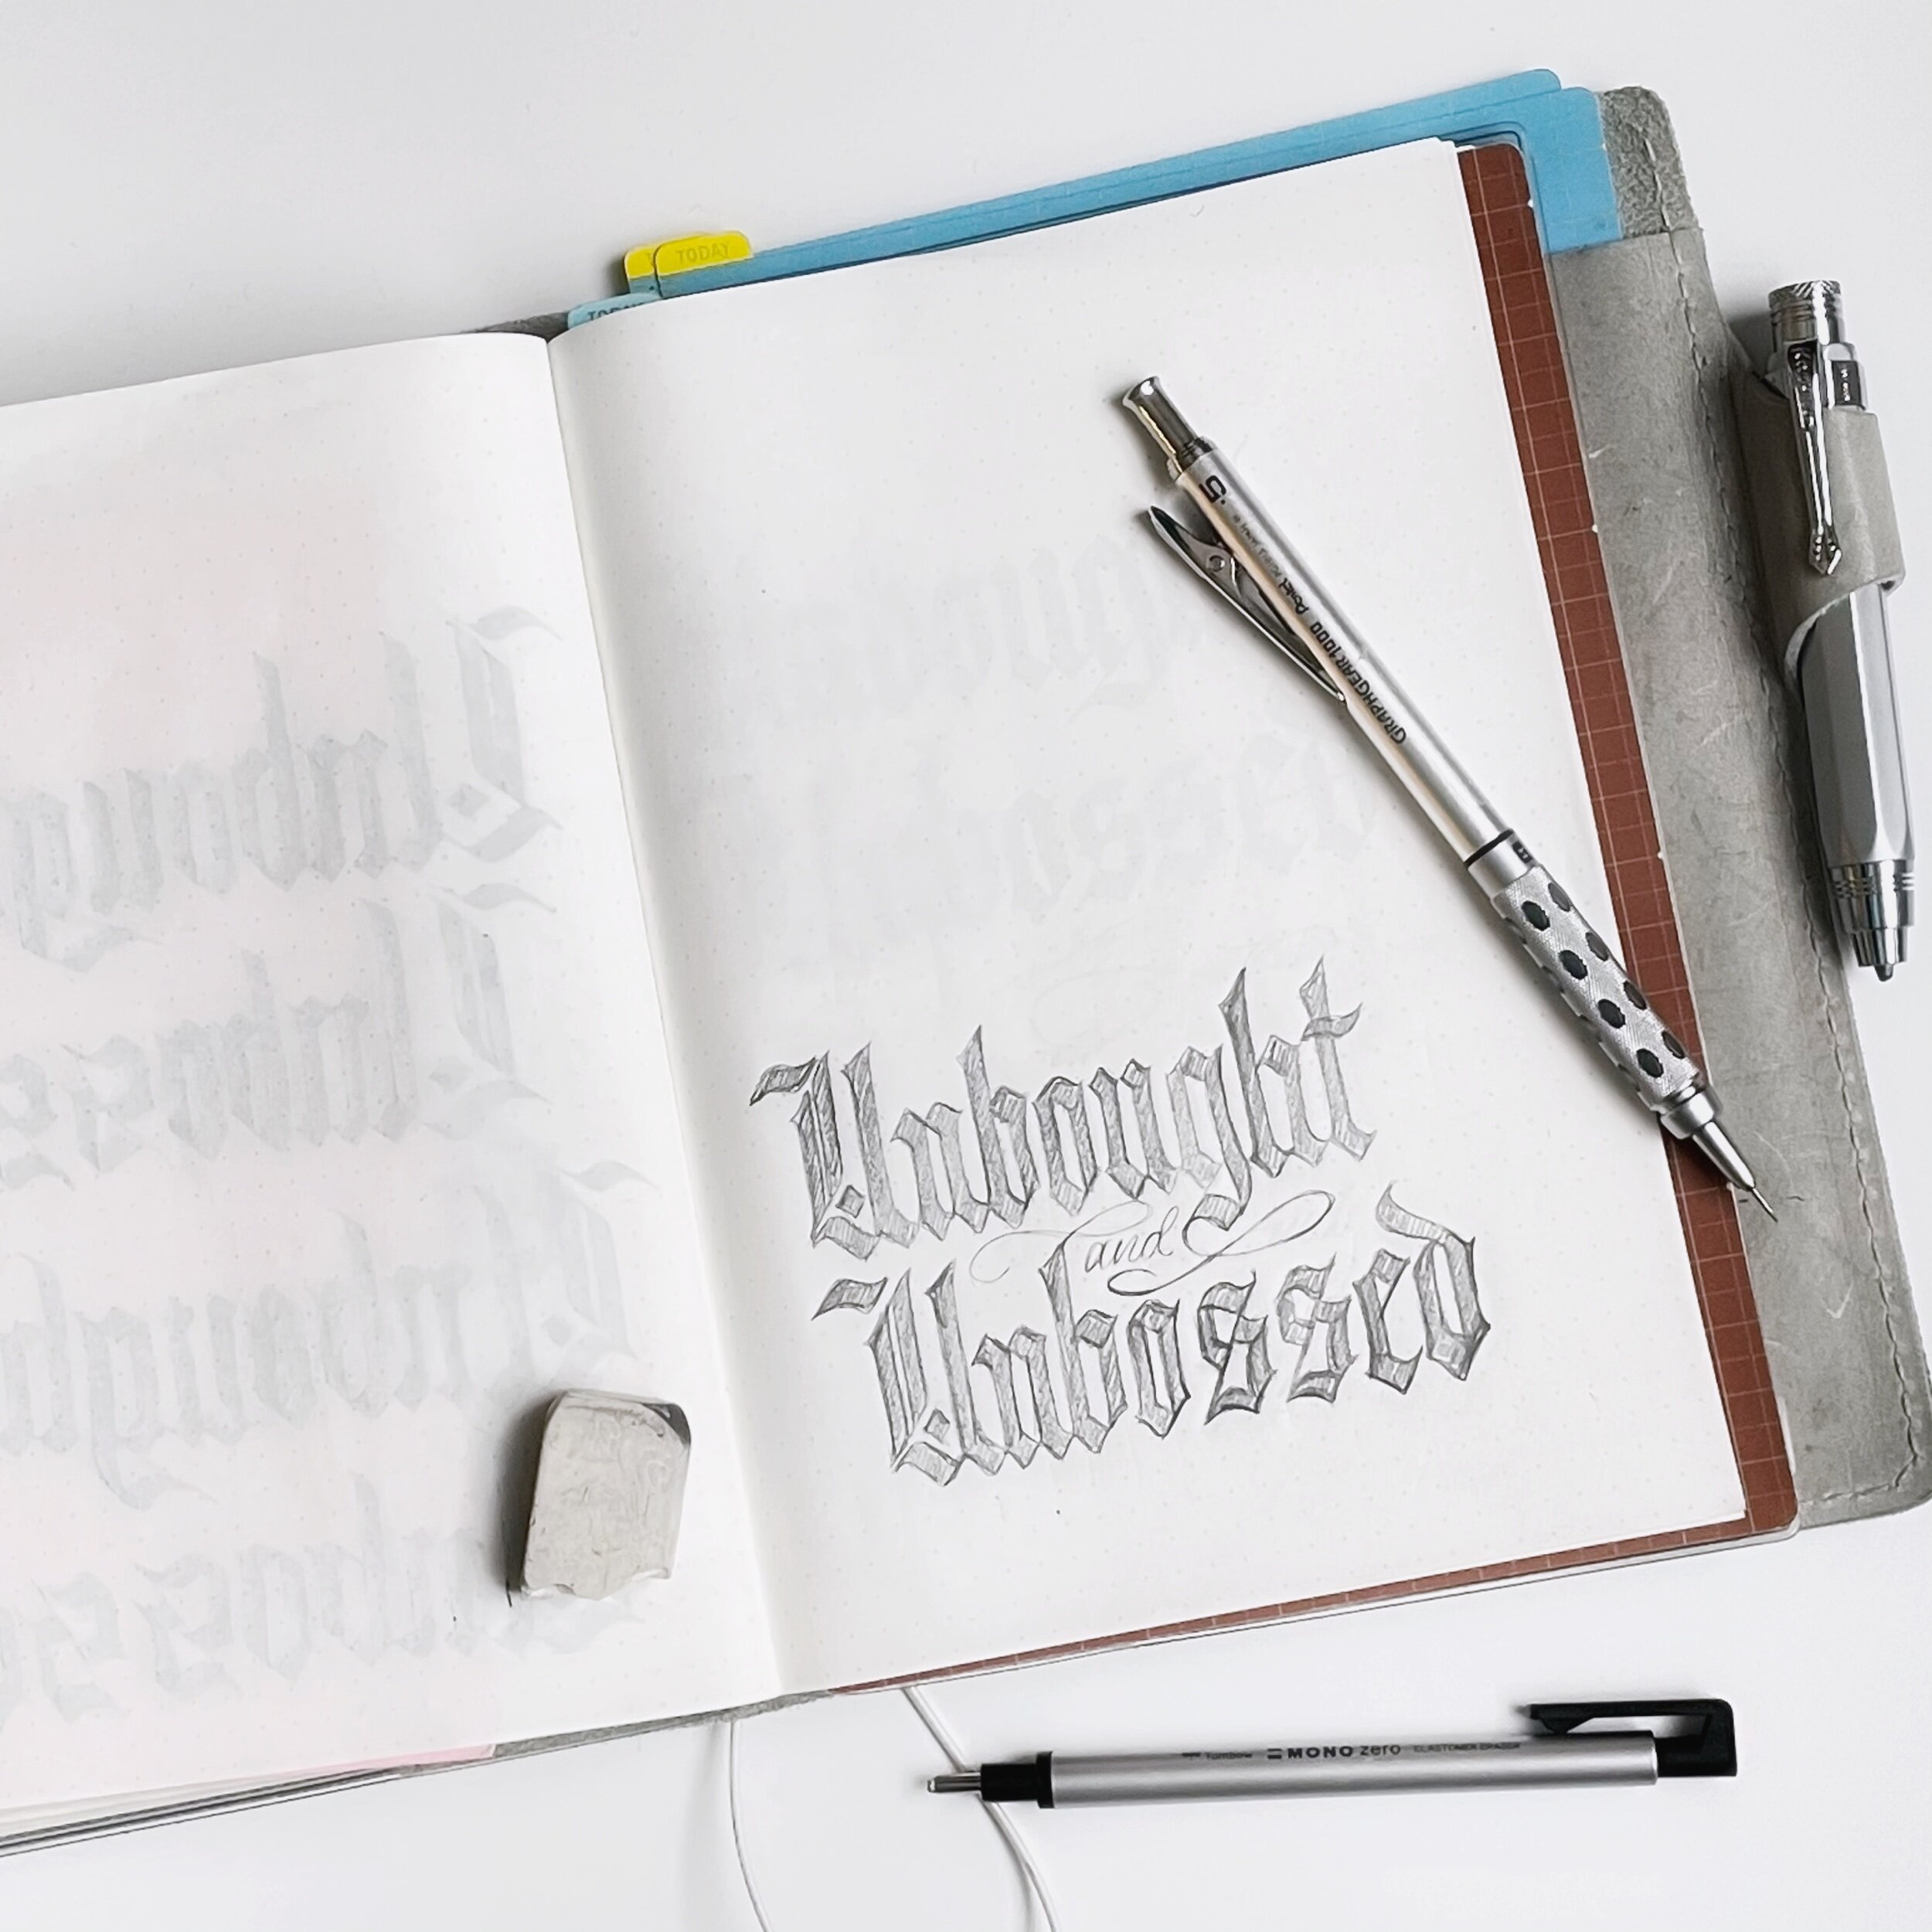 TODAY
TODAY
.5
Pentel
GRAPHGEAR 1000
Unbought
and
Unbossed
Tombow MONO zero ELASTOMER ERASER